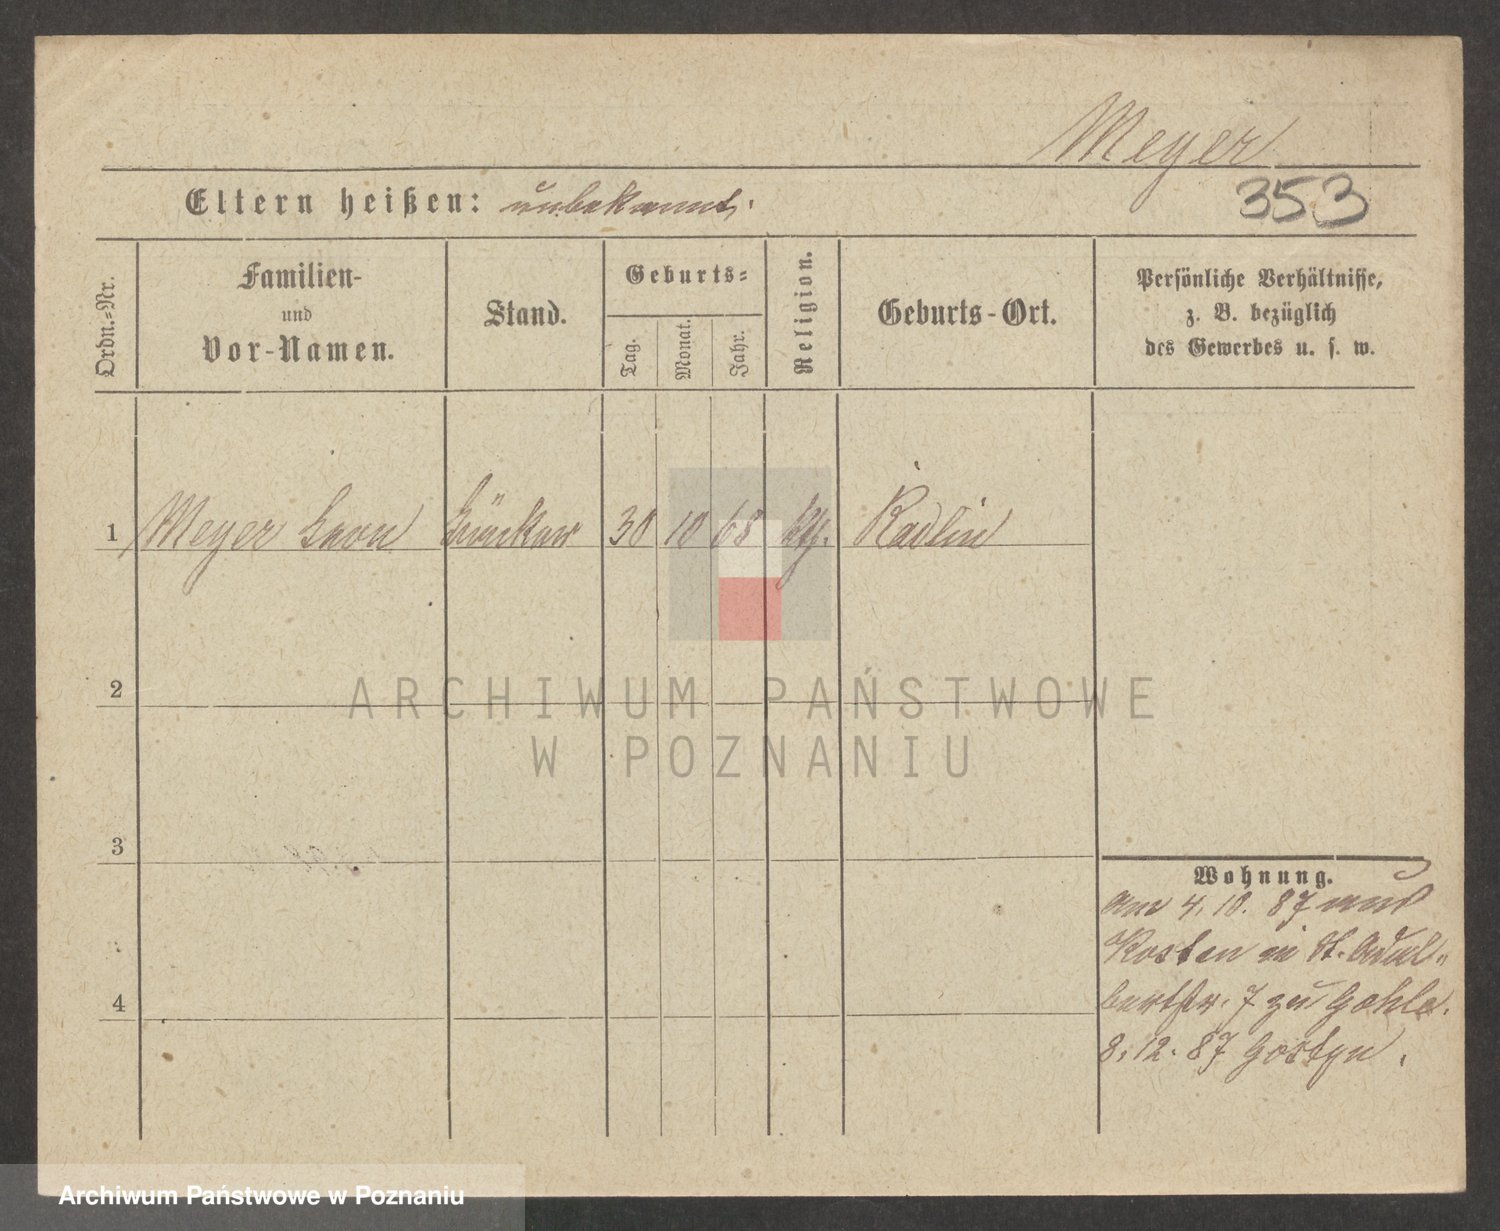 Meyer
353
Eltern heißen: unbekannt.
Ordn.-Nr.
Familien-
und
Vor-Namen.
Stand.
Geburts-
Tag.
Monat.
Jahr.
Religion.
Geburts-Ort.
Persönliche Verhältnisse,
z. B. bezüglich
des Gewerbes u. s. w.
1 Meyer Leon 30 10 68 kth. Radlin
2
3
4
Wohnung.
am 4. 10. 87 aus
Kosten in St. Adal-
bertstr. 7 zu
8. 12. 87 Gostyn.
ARCHIWUM PAŃSTWOWE
W POZNANIU
Archiwum Państwowe w Poznaniu